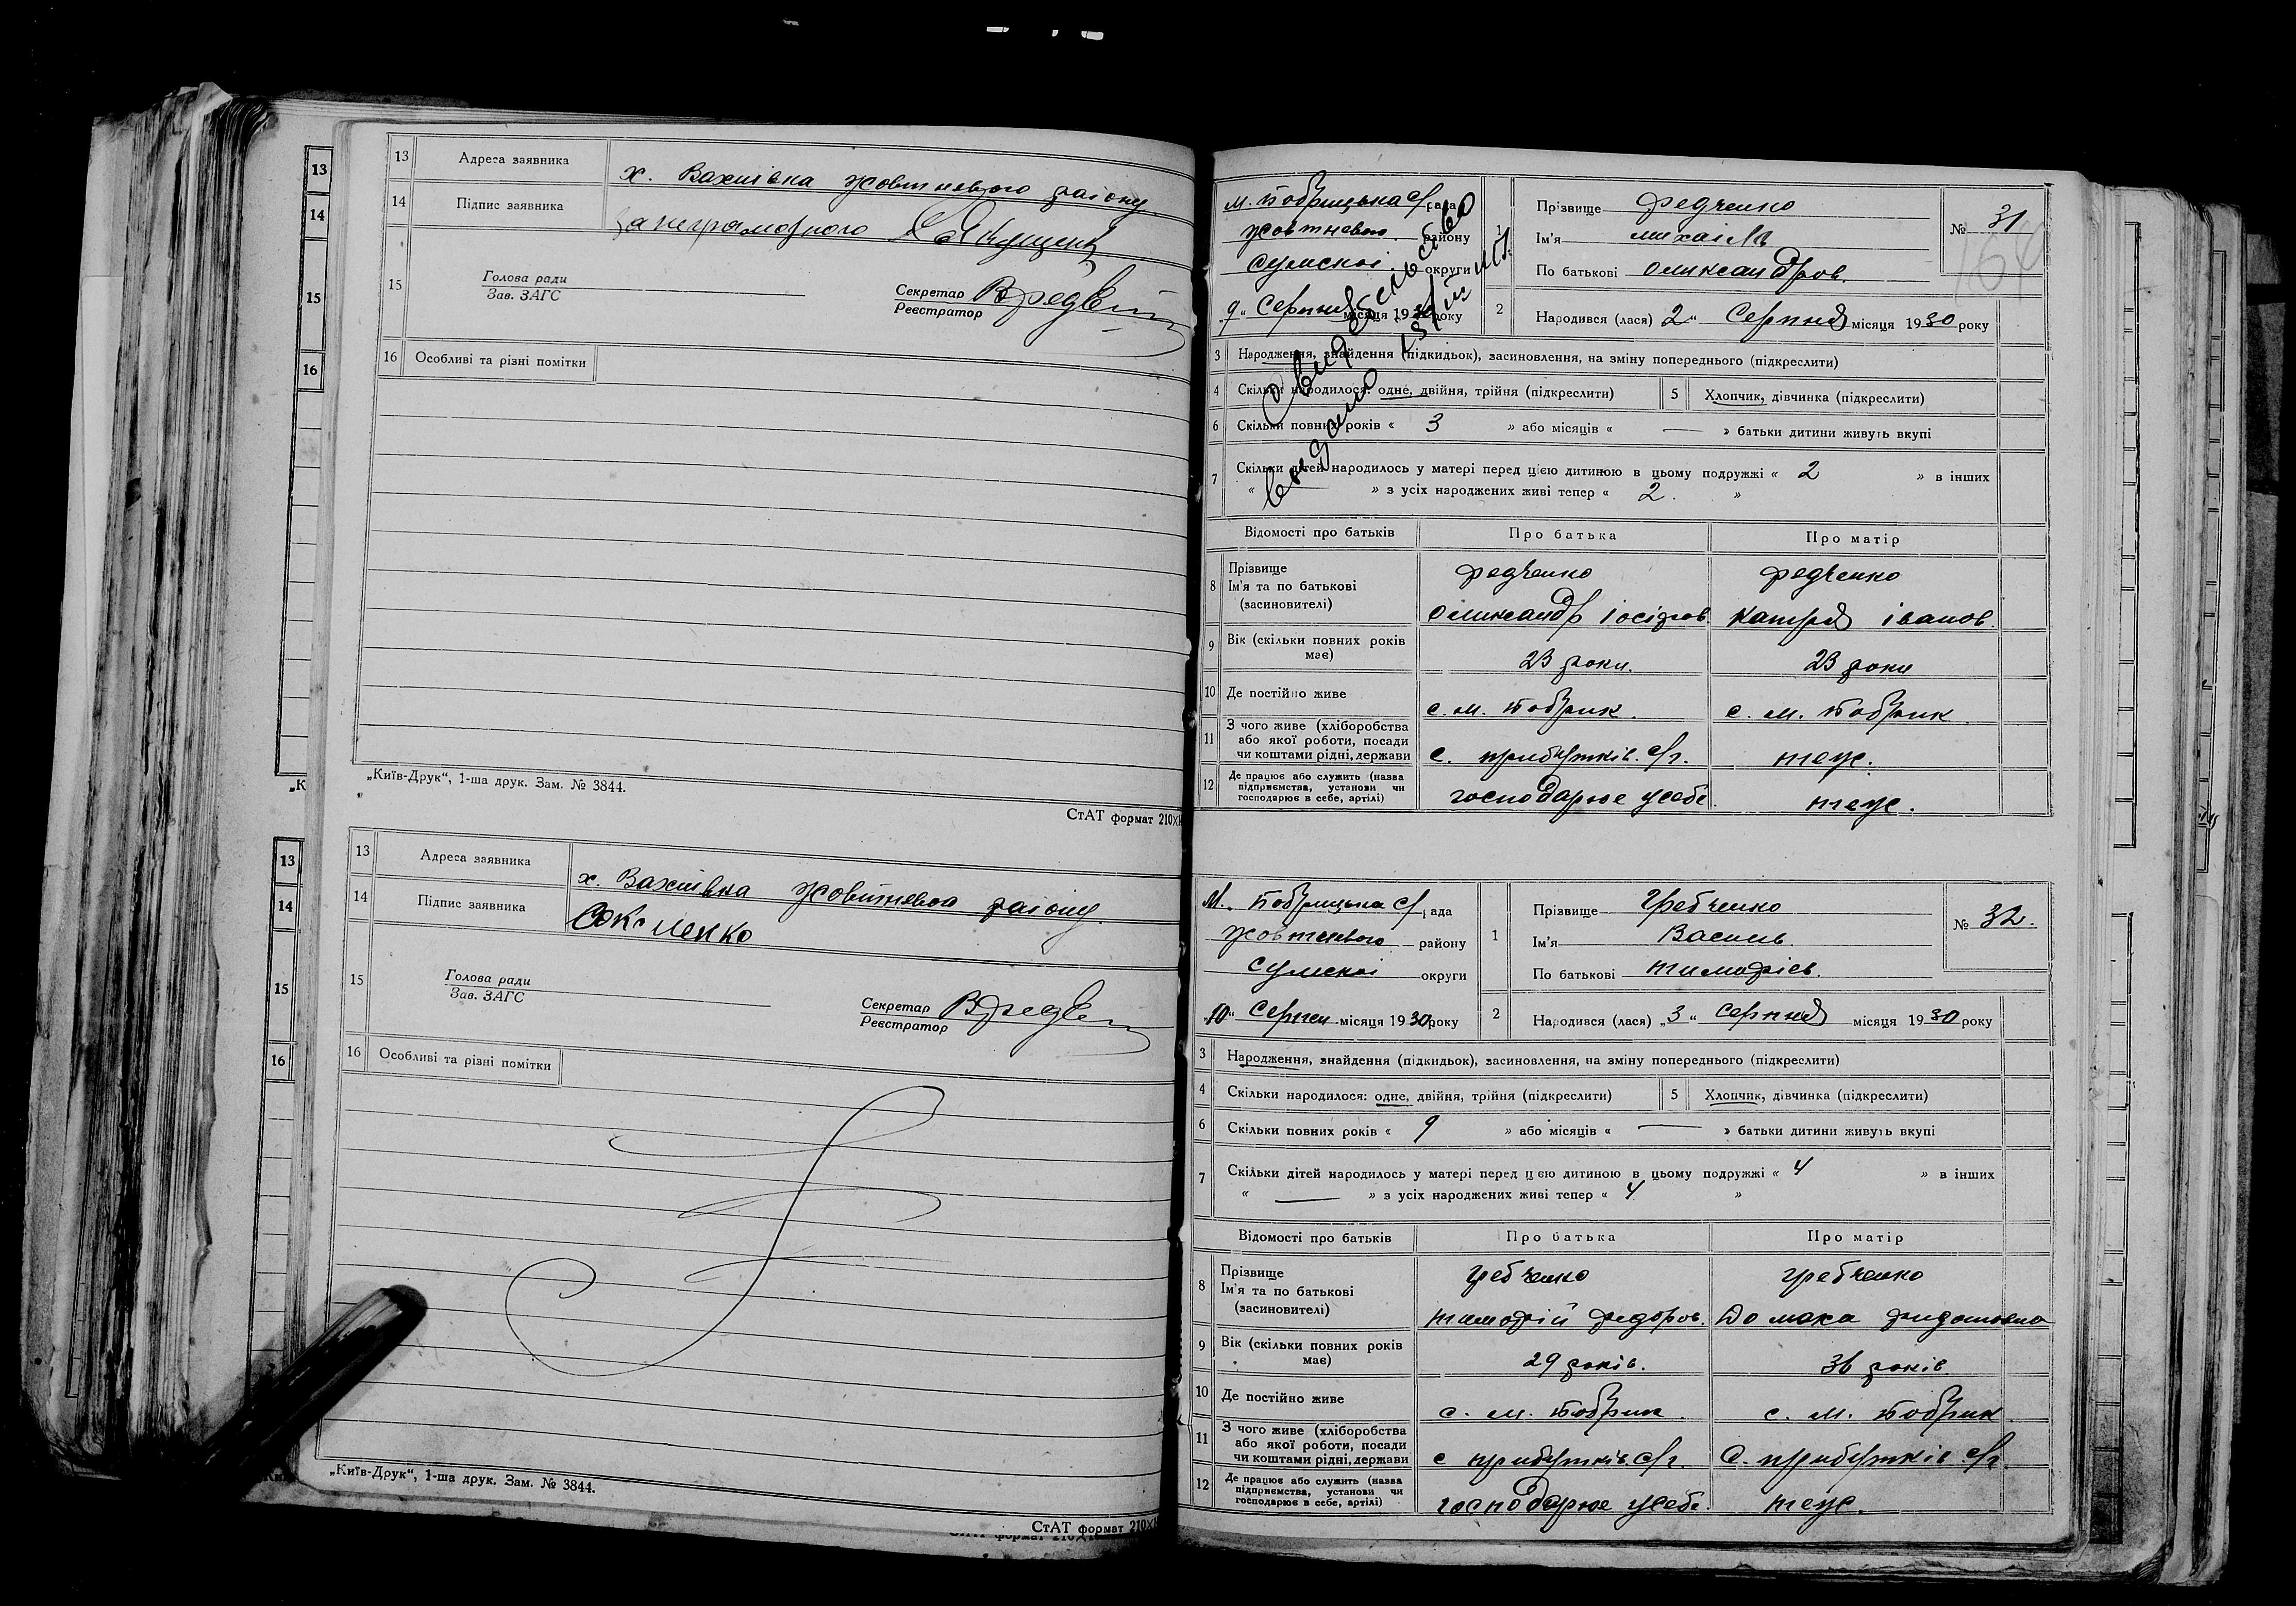 13 Адреса заявника х. Вахнівка жовтневого району.
14 Підпис заявника за неграмотного
15 Голова ради
Зав. ЗАГС
Секретар
Реєстратор
16 Особливі та різні помітки
„Київ-Друк“, 1-ша друк. Зам. № 3844.
СтАТ формат 210×
13 Адреса заявника х. Вахнівка жовтневого району.
14 Підпис заявника
15 Голова ради
Зав. ЗАГС
Секретар
Реєстратор
16 Особливі та різні помітки
„Київ-Друк“, 1-ша друк. Зам. № 3844.
СтАТ формат 210×
м. Бобрицька с/рада
жовтневого району
Сумскої округи
„9“ Серпня місяця 1930 року
Свидетельство
выдано
1 Прізвище Редченко
Ім'я михаіль
По батькові Олександров.
№ 31
2 Народився (лася) 2“ Серпня місяця 1930 року
3 Народження, знайдення (підкидьок), засиновлення, на зміну попереднього (підкреслити)
4 Скільки народилося: одне, двійня, трійня (підкреслити) 5 Хлопчик, дівчинка (підкреслити)
6 Скільки повних років « 3 » або місяців « — » батьки дитини живуть вкупі
7 Скільки дітей народилось у матері перед цією дитиною в цьому подружжі « 2 » в інших
« — » з усіх народжених живі тепер « 2. »
Відомості про батьків Про батька Про матір
8 Прізвище
Ім'я та по батькові
(засиновителі)
Редченко Редченко
Олександр іосіфов. Катря іванов.
9 Вік (скільки повних років має) 23 роки. 23 роки
10 Де постійно живе с. м. Бобрик. с. м. Бобрик
11 З чого живе (хліборобства
або якої роботи, посади
чи коштами рідні, держави
с. прибутків. с/г. теж.
12 Де працює або служить (назва
підприємства, установи чи
господарює в себе, артілі)
господарює у себе. теж.
М. Бобрицька с/рада
жовтневого — району
сумскої округи
„10“ Серпня місяця 1930 року
1 Прізвище Гребченко
Ім'я Василь.
По батькові тимофієв.
№ 32.
2 Народився (лася) „3“ серпня місяця 1930 року
3 Народження, знайдення (підкидьок), засиновлення, на зміну попереднього (підкреслити)
4 Скільки народилося: одне, двійня, трійня (підкреслити) 5 Хлопчик, дівчинка (підкреслити)
6 Скільки повних років « 9 » або місяців « — » батьки дитини живуть вкупі
7 Скільки дітей народилось у матері перед цією дитиною в цьому подружжі « 4 » в інших
« — » з усіх народжених живі тепер « 4 »
Відомості про батьків Про батька Про матір
8 Прізвище
Ім'я та по батькові
(засиновителі)
гребченко гребченко
тимофій федоров. Домаха
9 Вік (скільки повних років має) 29 років. 36 років
10 Де постійно живе с. м. Бобрик. с. м. Бобрик
11 З чого живе (хліборобства
або якої роботи, посади
чи коштами рідні, держави
с прибутків. с/г. С. прибутків с/г.
12 Де працює або служить (назва
підприємства, установи чи
господарює в себе, артілі)
господарює у себе. теж.